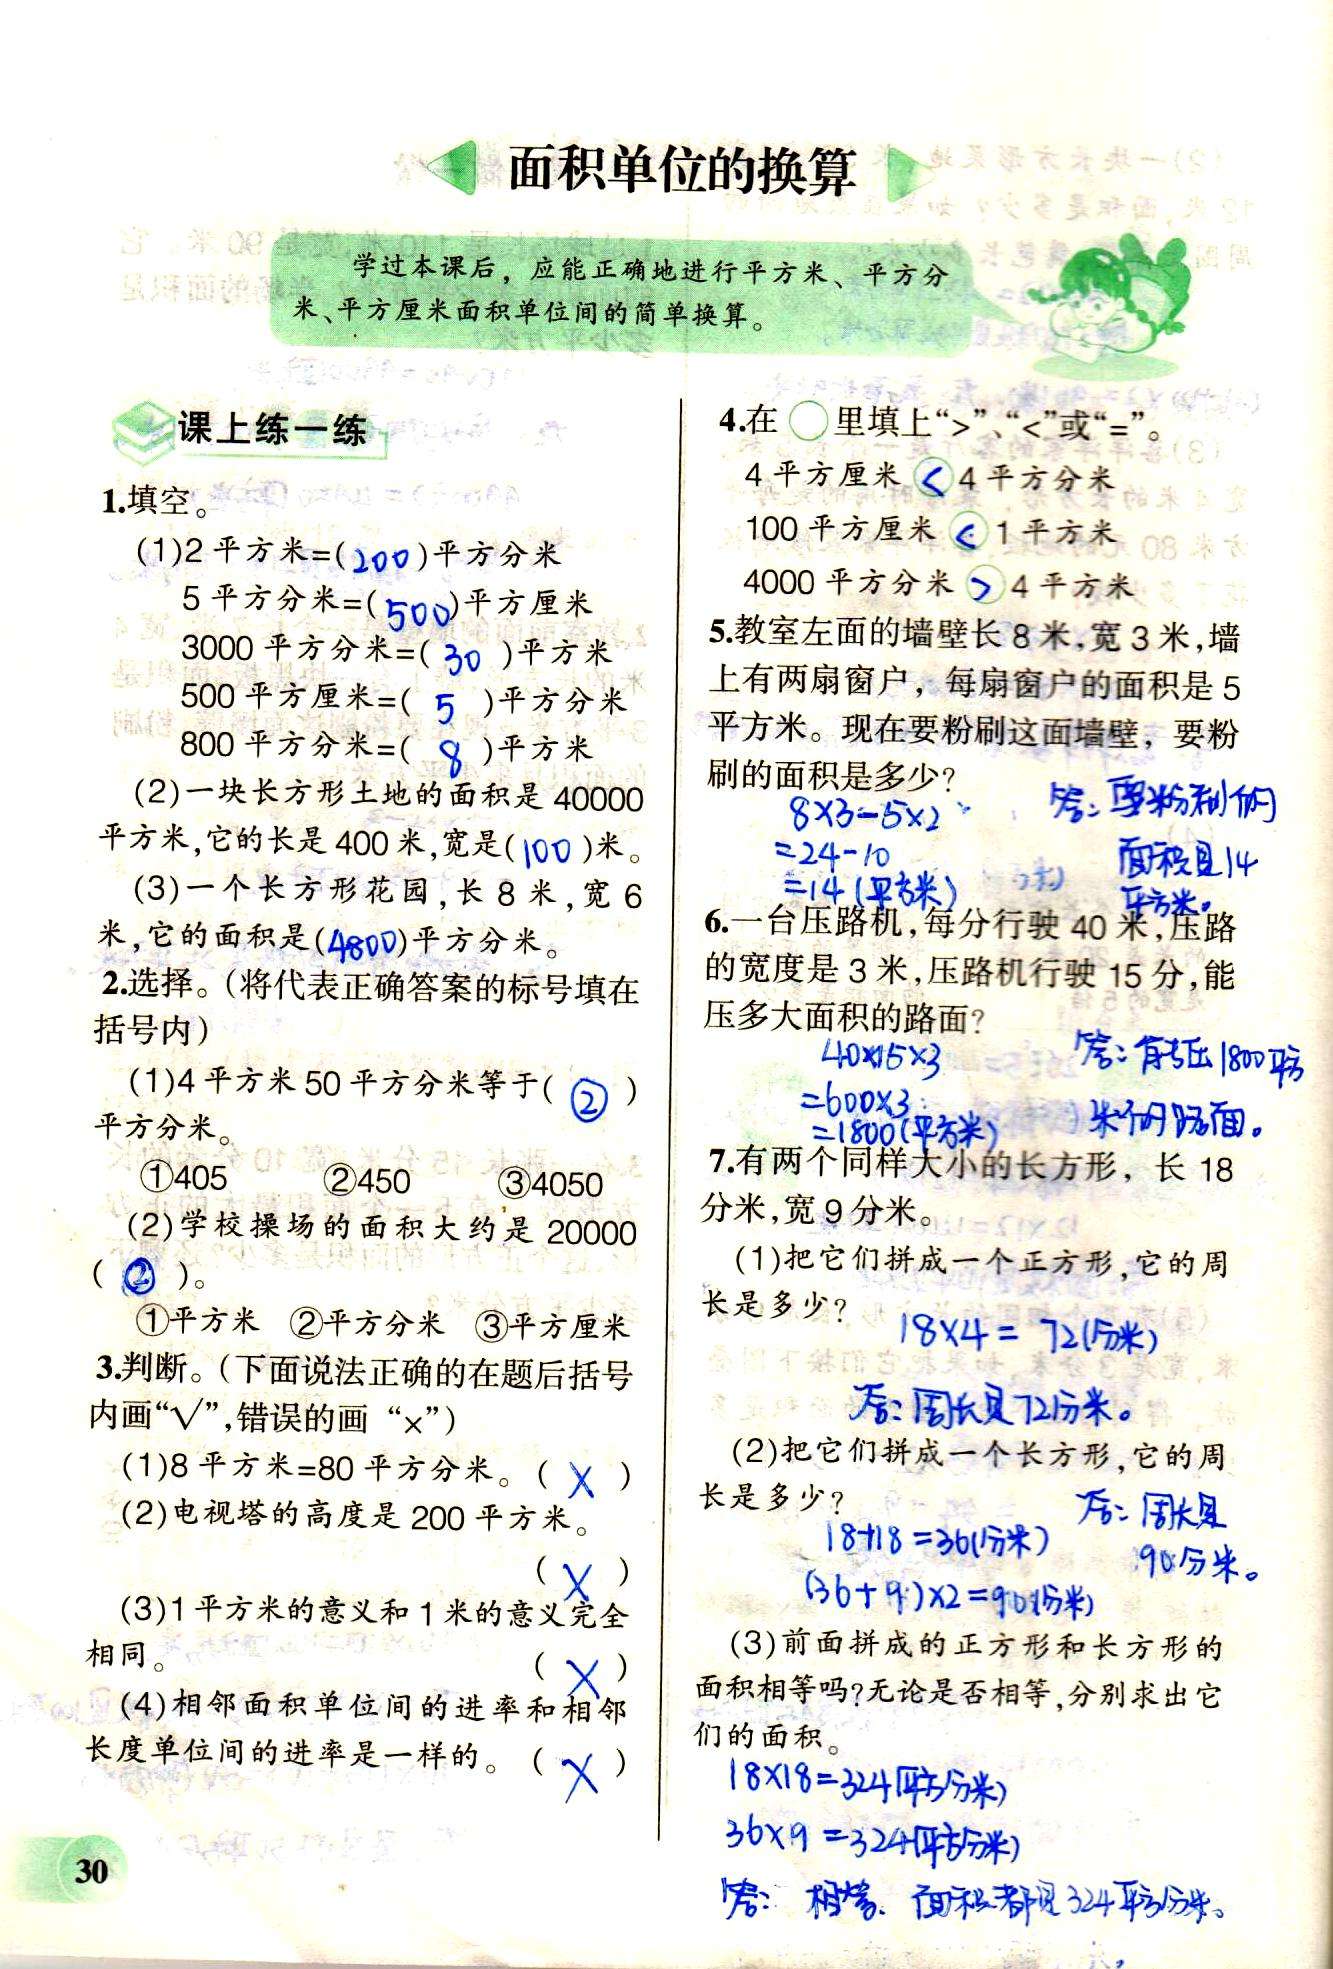 面积单位的换算
学过本课后，应能正确地进行平方米、平方分
米、平方厘米面积单位间的简单换算。
课上练一练
1.填空。
(1)2平方米=(200)平方分米
5平方分米=(500)平方厘米
3000平方分米=(30)平方米
500平方厘米=(5)平方分米
800平方分米=(8)平方米
(2)一块长方形土地的面积是40000
平方米,它的长是400米,宽是(100)米。
(3)一个长方形花园,长8米,宽6
米,它的面积是(4800)平方分米。
2.选择。(将代表正确答案的标号填在
括号内)
(1)4平方米50平方分米等于(②)
平方分米。
①405 ②450 ③4050
(2)学校操场的面积大约是20000
(②)。
①平方米 ②平方分米 ③平方厘米
3.判断。(下面说法正确的在题后括号
内画“√”,错误的画“×”)
(1)8平方米=80平方分米。(×)
(2)电视塔的高度是200平方米。
(×)
(3)1平方米的意义和1米的意义完全
相同。(×)
(4)相邻面积单位间的进率和相邻
长度单位间的进率是一样的。(×)
30
4.在○里填上“>”、“<”或“=”。
4平方厘米<4平方分米
100平方厘米<1平方米
4000平方分米>4平方米
5.教室左面的墙壁长8米,宽3米,墙
上有两扇窗户，每扇窗户的面积是5
平方米。现在要粉刷这面墙壁，要粉
刷的面积是多少?
8×3-5×2
=24-10
=14(平方米)
答:要粉刷的
面积是14
平方米。
6.一台压路机,每分行驶40米,压路
的宽度是3米,压路机行驶15分,能
压多大面积的路面?
40×15×3
=600×3
=1800(平方米)
答:有压1800平方
米的路面。
7.有两个同样大小的长方形，长18
分米,宽9分米。
(1)把它们拼成一个正方形,它的周
长是多少?
18×4=72(分米)
答:周长是72分米。
(2)把它们拼成一个长方形,它的周
长是多少?
18+18=36(分米)
(36+9)×2=90(分米)
答:周长是
90分米。
(3)前面拼成的正方形和长方形的
面积相等吗?无论是否相等,分别求出它
们的面积。
18×18=324(平方分米)
36×9=324(平方分米)
答:相等、面积都是324平方分米。